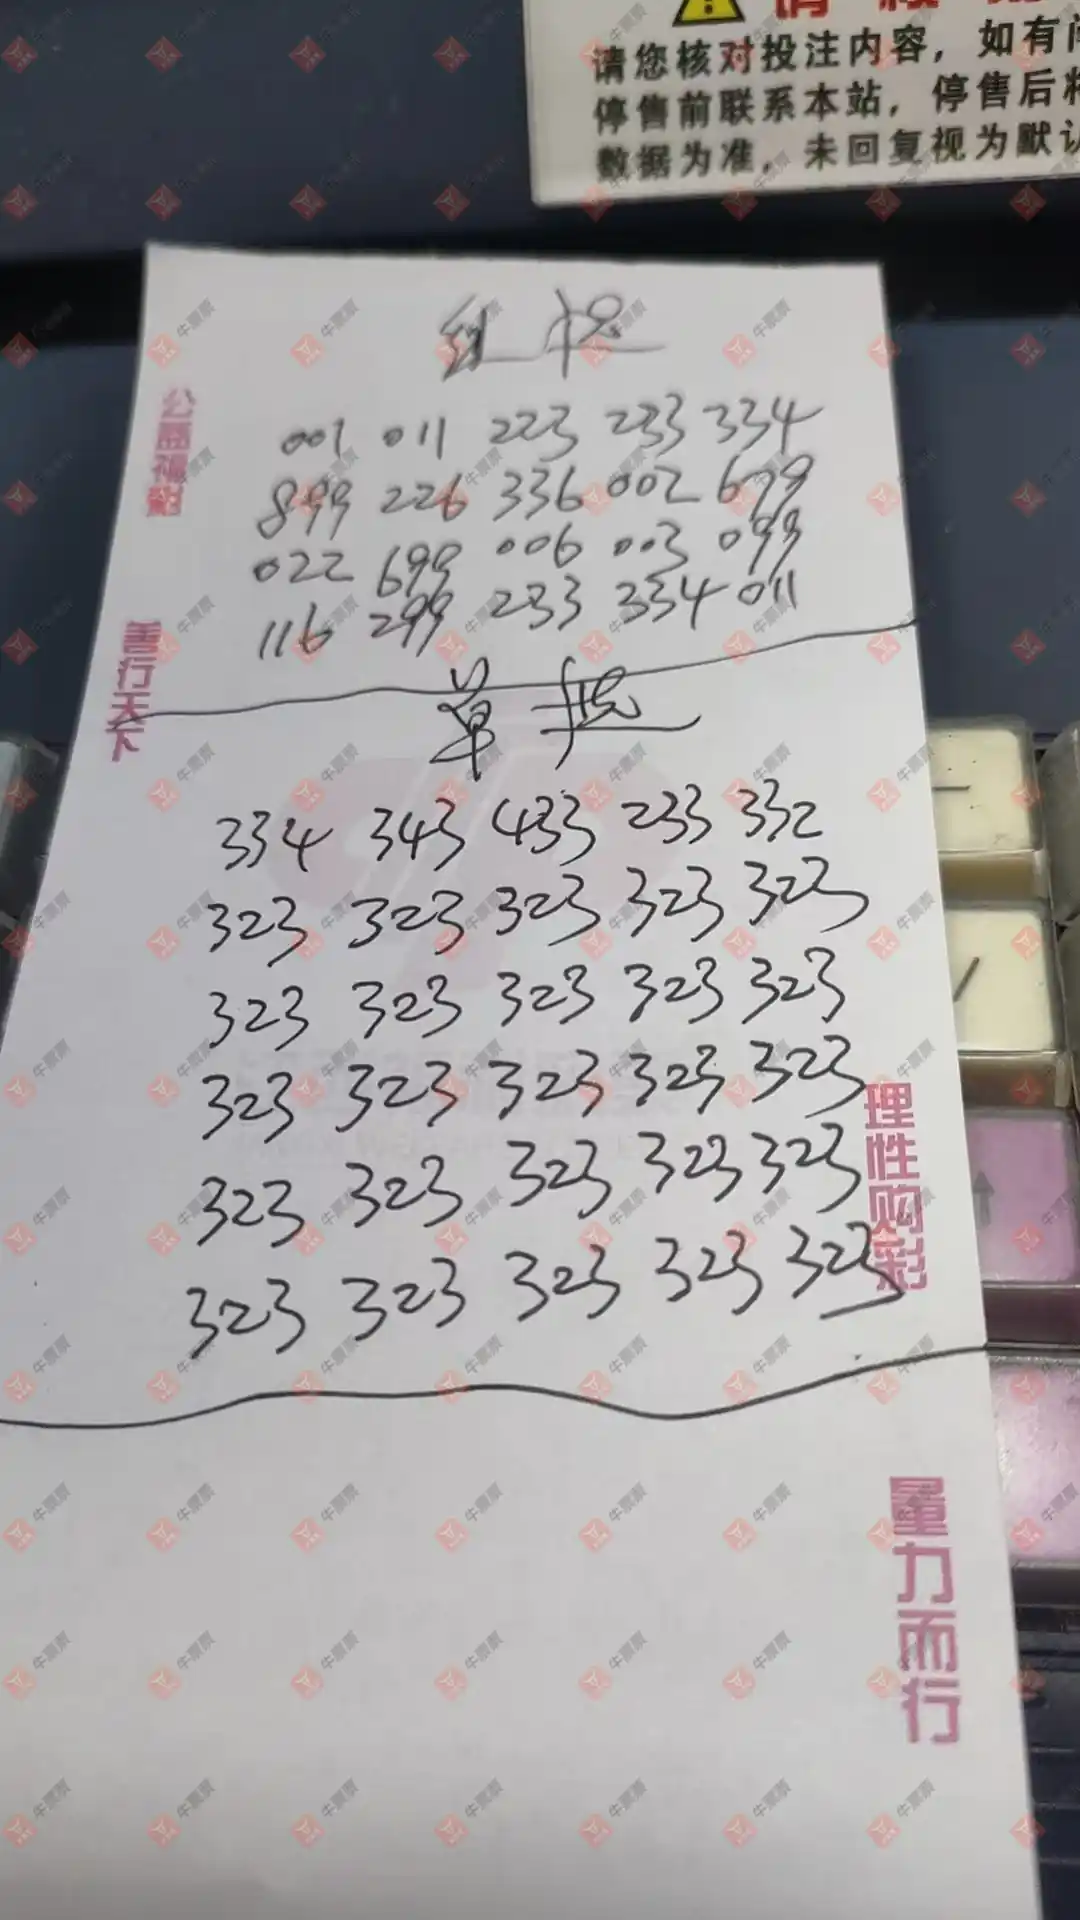 请您核对投注内容，如有问
停售前联系本站，停售后将
数据为准，未回复视为默认
组
001 011 223 233 334
899 226 336 002 699
022 699 006 003 099
116 299 233 334 011
单
334 343 433 233 332
323 323 323 323 323
323 323 323 323 323
323 323 323 323 323
323 323 323 323 323
323 323 323 323 323
公益福彩
善行天下
理性购彩
量力而行
牛票票